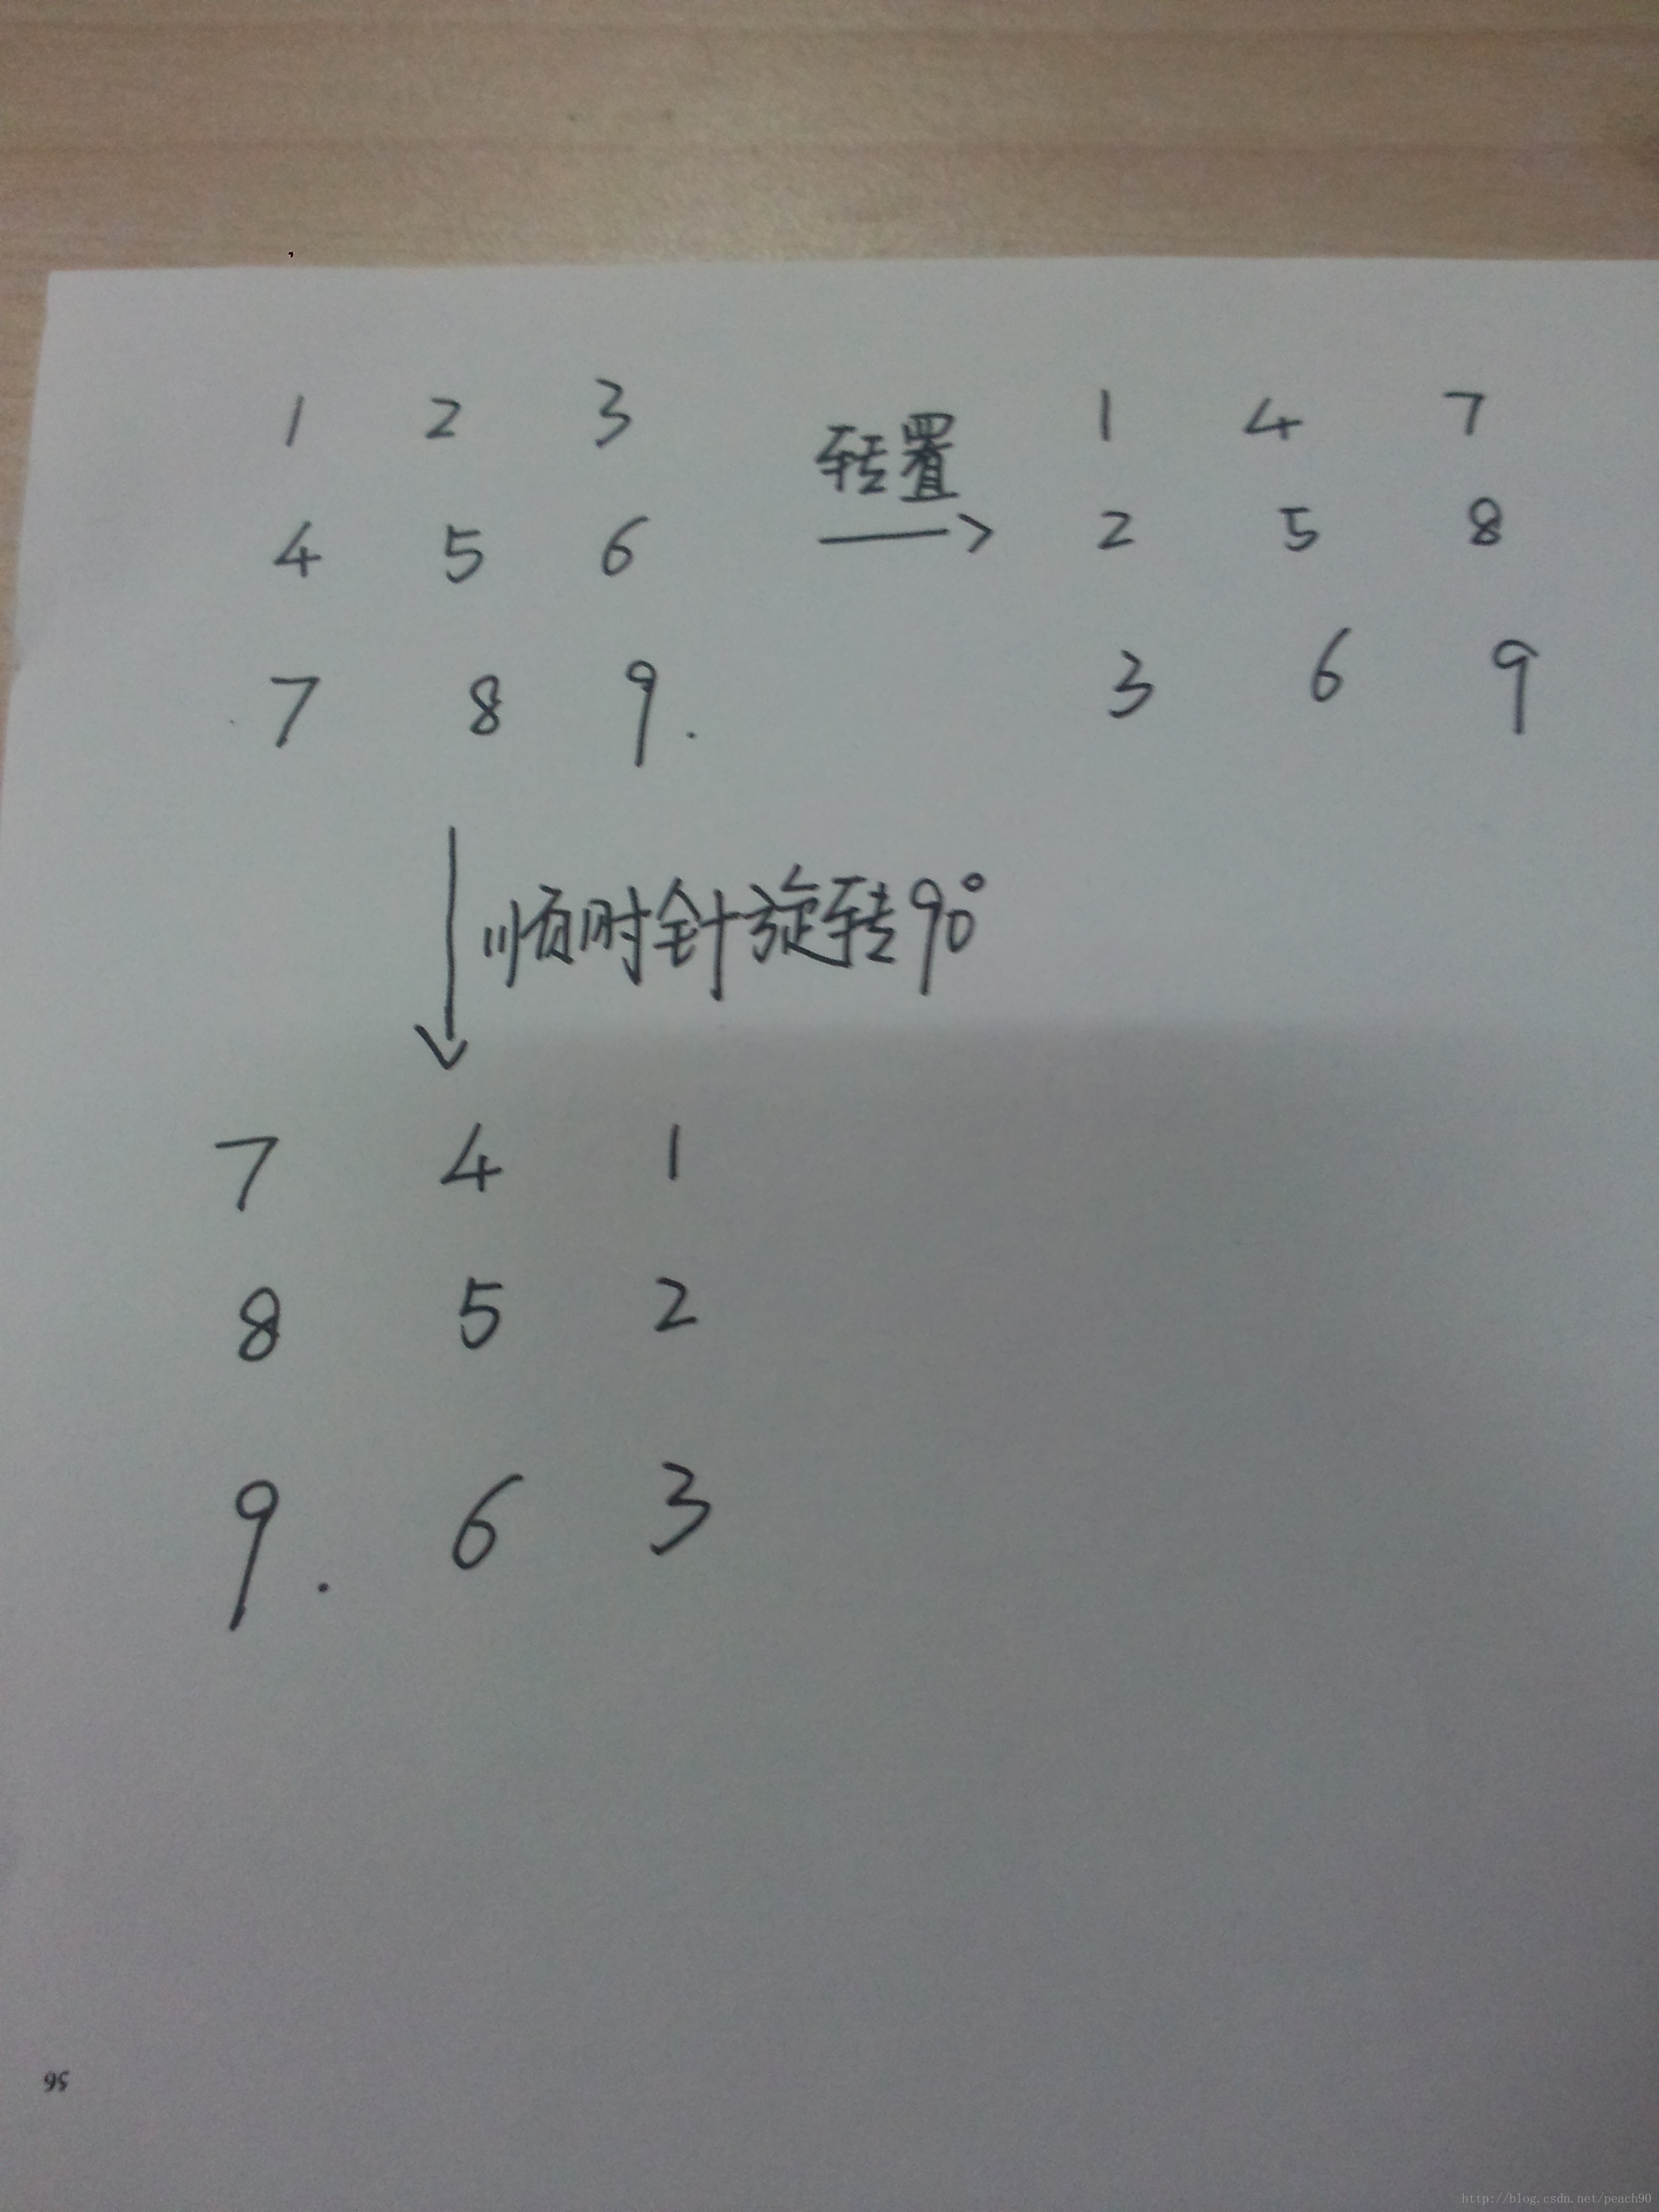 1 2 3
4 5 6
7 8 9.
转置
1 4 7
2 5 8
3 6 9
顺时针旋转90°
7 4 1
8 5 2
9. 6 3
56
http://blog.csdn.net/peach90